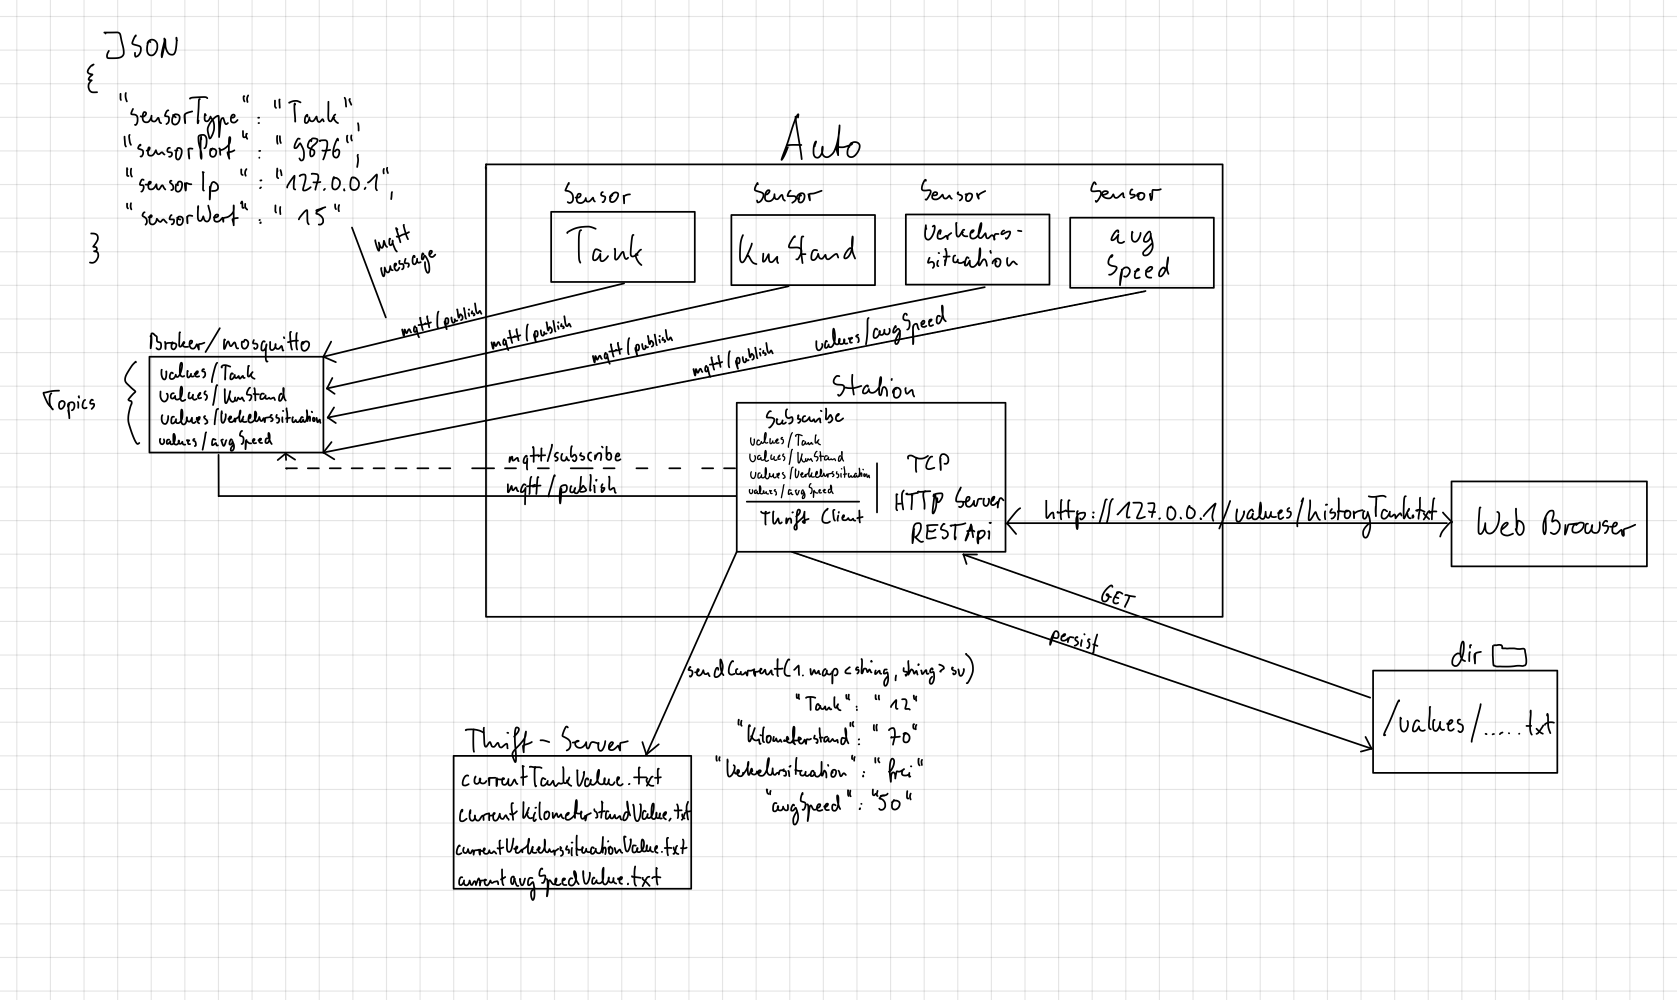 JSON
{
"sensorType" : "Tank",
"sensorPort" : "9876",
"sensorIp" : "127.0.0.1",
"sensorWert" : "15"
}
mqtt
message
Auto
Sensor
Tank
Sensor
Km Stand
Sensor
Verkehrs-
situation
Sensor
avg
Speed
mqtt/publish
mqtt/publish
mqtt/publish
mqtt/publish
values/avgSpeed
Broker/mosquitto
Topics
values/Tank
values/KmStand
values/Verkehrssituation
values/avgSpeed
mqtt/subscribe
mqtt/publish
Station
Subscribe
values/Tank
values/KmStand
values/Verkehrssituation
values/avgSpeed
Thrift Client
TCP
HTTP Server
RESTApi
http://127.0.0.1/values/historyTank.txt
Web Browser
GET
persist
dir
/values/.....txt
sendCurrent(1.map<string, string> sv)
"Tank": "12"
"Kilometerstand": "70"
"Verkehrsituation": "frei"
"avgSpeed": "50"
Thrift-Server
currentTankValue.txt
currentKilometerstandValue.txt
currentVerkehrssituationValue.txt
currentavgSpeedValue.txt